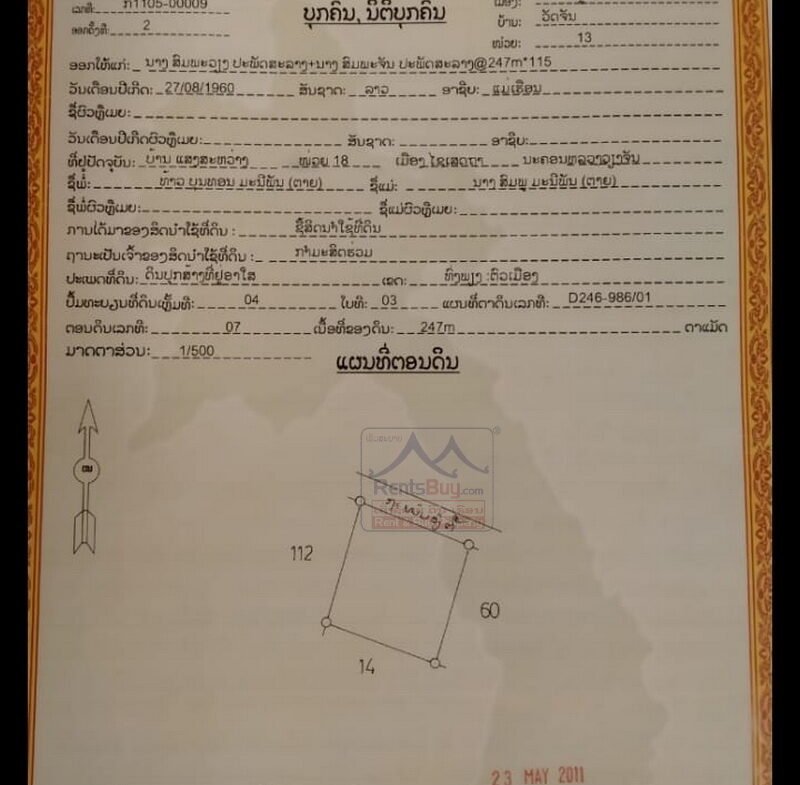 ເລກທີ: ກ1105-00009
ບຸກຄົນ, ນິຕິບຸກຄົນ
ເມືອງ:
ອອກຄັ້ງທີ: 2
ບ້ານ: ວັດຈັນ
ໜ່ວຍ: 13
ອອກໃຫ້ແກ່: ນາງ ສົມພະວຽງ ປະພັດສະລາງ+ນາງ ສົມພະຈັນ ປະພັດສະລາງ@247m*115
ວັນເດືອນປີເກີດ: 27/08/1960 ສັນຊາດ: ລາວ ອາຊີບ: ແມ່ເຮືອນ
ຊື່ຜົວຫຼືເມຍ:
ວັນເດືອນປີເກີດຜົວຫຼືເມຍ: ສັນຊາດ: ອາຊີບ:
ທີ່ຢູ່ປັດຈຸບັນ: ບ້ານ ແສງສະຫວ່າງ ໜ່ວຍ 18 ເມືອງ ໄຊເສດຖາ ນະຄອນຫລວງວຽງຈັນ
ຊື່ພໍ່: ທ້າວ ບຸນທອນ ມະນີພັນ (ຕາຍ) ຊື່ແມ່: ນາງ ສົມພູ ມະນີພັນ (ຕາຍ)
ຊື່ພໍ່ຜົວຫຼືເມຍ: ຊື່ແມ່ຜົວຫຼືເມຍ:
ການໄດ້ມາຂອງສິດນຳໃຊ້ທີ່ດິນ : ຊື້ສິດນຳໃຊ້ທີ່ດິນ
ຖານະເປັນເຈົ້າຂອງສິດນຳໃຊ້ທີ່ດິນ : ກຳມະສິດຮ່ວມ
ປະເພດທີ່ດິນ: ດິນປຸກສ້າງທີ່ຢູ່ອາໃສ ເຂດ: ທົ່ງພຽງ :ຕົວເມືອງ
ປຶ້ມທະບຽນທີ່ດິນເຫຼັ້ມທີ: 04 ໃບທີ: 03 ແຜນທີ່ຕາດິນເລກທີ: D246-986/01
ຕອນດິນເລກທີ: 07 ເນື້ອທີ່ຂອງດິນ: 247m ຕາແມັດ
ມາດຕາສ່ວນ: 1/500
ແຜນທີ່ຕອນດິນ
RentsBuy.com
Rent &
112
60
14
23 MAY 2011